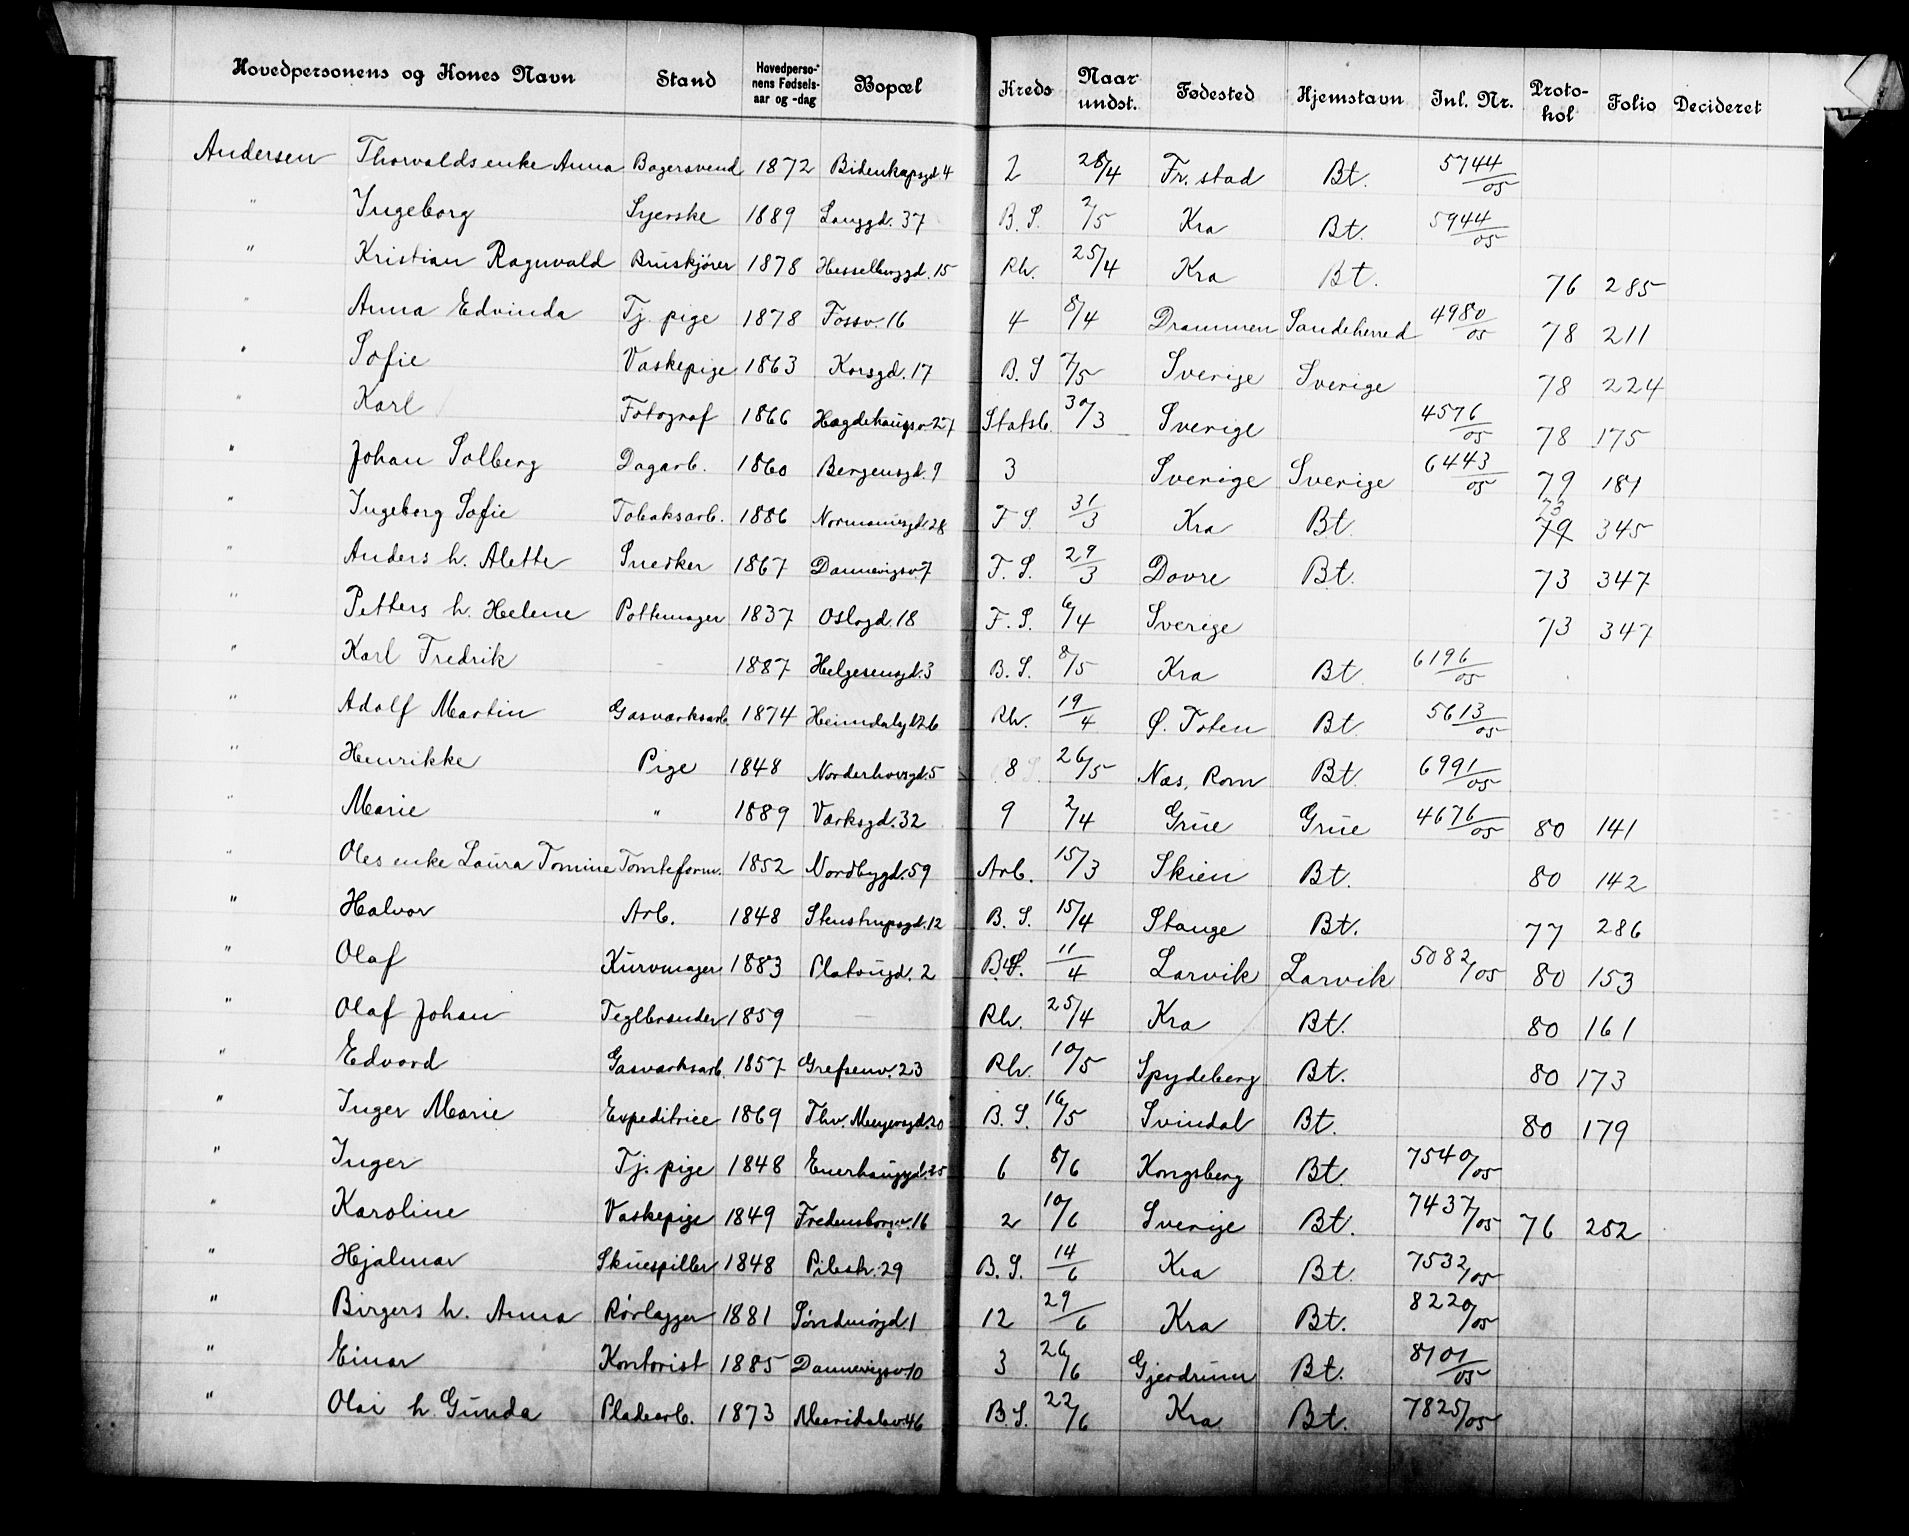 Hovedpersonens og Kones Navn Stand Hovedpersonens Fødselsaar og -dag Bopæl Kreds Naar undst. Fødested Hjemstavn Inl. Nr. Protokol Folio Decideret
Andersen Thorvalds enke Anna Bagersvend 1872 Bidenkapsgd 4 2 28/4 Fr. stad Bt. 5744/05
" Ingeborg Syerske 1889 Langgd. 37 B. S. 2/5 Kra Bt. 5944/05
" Kristian Ragnvald Bruskjører 1878 Hesselberggd. 15 Rh. 25/4 Kra Bt. 76 285
" Anna Edvinda Tj. pige 1878 Fossv. 16 4 8/4 Drammen Sandeherred 4980/05 78 211
" Sofie Vaskepige 1863 Korsgd. 17 B. S 7/5 Sverige Sverige 78 224
" Karl Fotograf 1866 Hægdehaugsv. 27 Statsb. 30/3 Sverige 4576/05 78 175
" Johan Solberg Dagarb. 1860 Bergensgd. 9 3 Sverige Sverige 6443/05 79 181
" Ingeborg Sofie Tobaksarb. 1886 Normannsgd. 28 F S. 31/3 Kra Bt. 73 79 345
" Anders h. Alette Snedker 1867 Dannevigsv. 7 F. S. 29/3 Dovre Bt. 73 347
" Petters h. Helene Pottemager 1837 Oslogd. 18 F. S. 6/4 Sverige 73 347
" Karl Fredrik 1887 Helgesensgd. 3 B. S. 8/5 Kra Bt. 6196/05
" Adolf Martin Gasværksarb. 1874 Heimdalsgd. 26 Rh. 19/4 Ø. Toten Bt. 5613/05
" Henrikke Pige 1848 Norderhovsgd. 5 8 26/5 Næs, Rom Bt. 6991/05
" Marie " 1889 Værksgd. 32 9 2/4 Grue Grue 4676/05 80 141
" Oles enke Laura Tomine Tomteform. 1852 Nordbygd. 59 Arb. 15/3 Skien Bt. 80 142
" Halvor Arb. 1848 Stenstrupsgd. 12 B. S. 15/4 Stange Bt. 77 286
" Olaf Kurvmager 1883 Platougd. 2 B. S. 11/4 Larvik Larvik 5082/05 80 153
" Olaf Johan Teglbrænder 1859 Rh. 25/4 Kra Bt. 80 161
" Edvard Gasværksarb. 1857 Grefsenv. 23 Rh. 10/5 Spydeberg Bt. 80 173
" Inger Marie Expeditrice 1869 Thv. Meyersgd. 20 B. S. 16/5 Svindal Bt. 80 179
" Inger Tj. pige 1848 Enerhauggd. 25 6 8/6 Kongsberg Bt. 7540/05
" Karoline Vaskepige 1849 Fredensborgv. 16 2 10/6 Sverige Bt. 7437/05 76 252
" Hjalmar Skuespiller 1848 Pilestr. 29 B. S. 14/6 Kra Bt. 7532/05
" Birgers h. Anna Rørlægger 1881 Søndmørgd. 1 12 29/6 Kra Bt. 8220/05
" Einar Kontorist 1885 Dannevigsv. 10 3 26/6 Gjerdrum Bt. 8101/05
" Olai h Gunda Pladearb. 1873 Maridalsv. 46 B. S. 22/6 Kra Bt. 7825/05